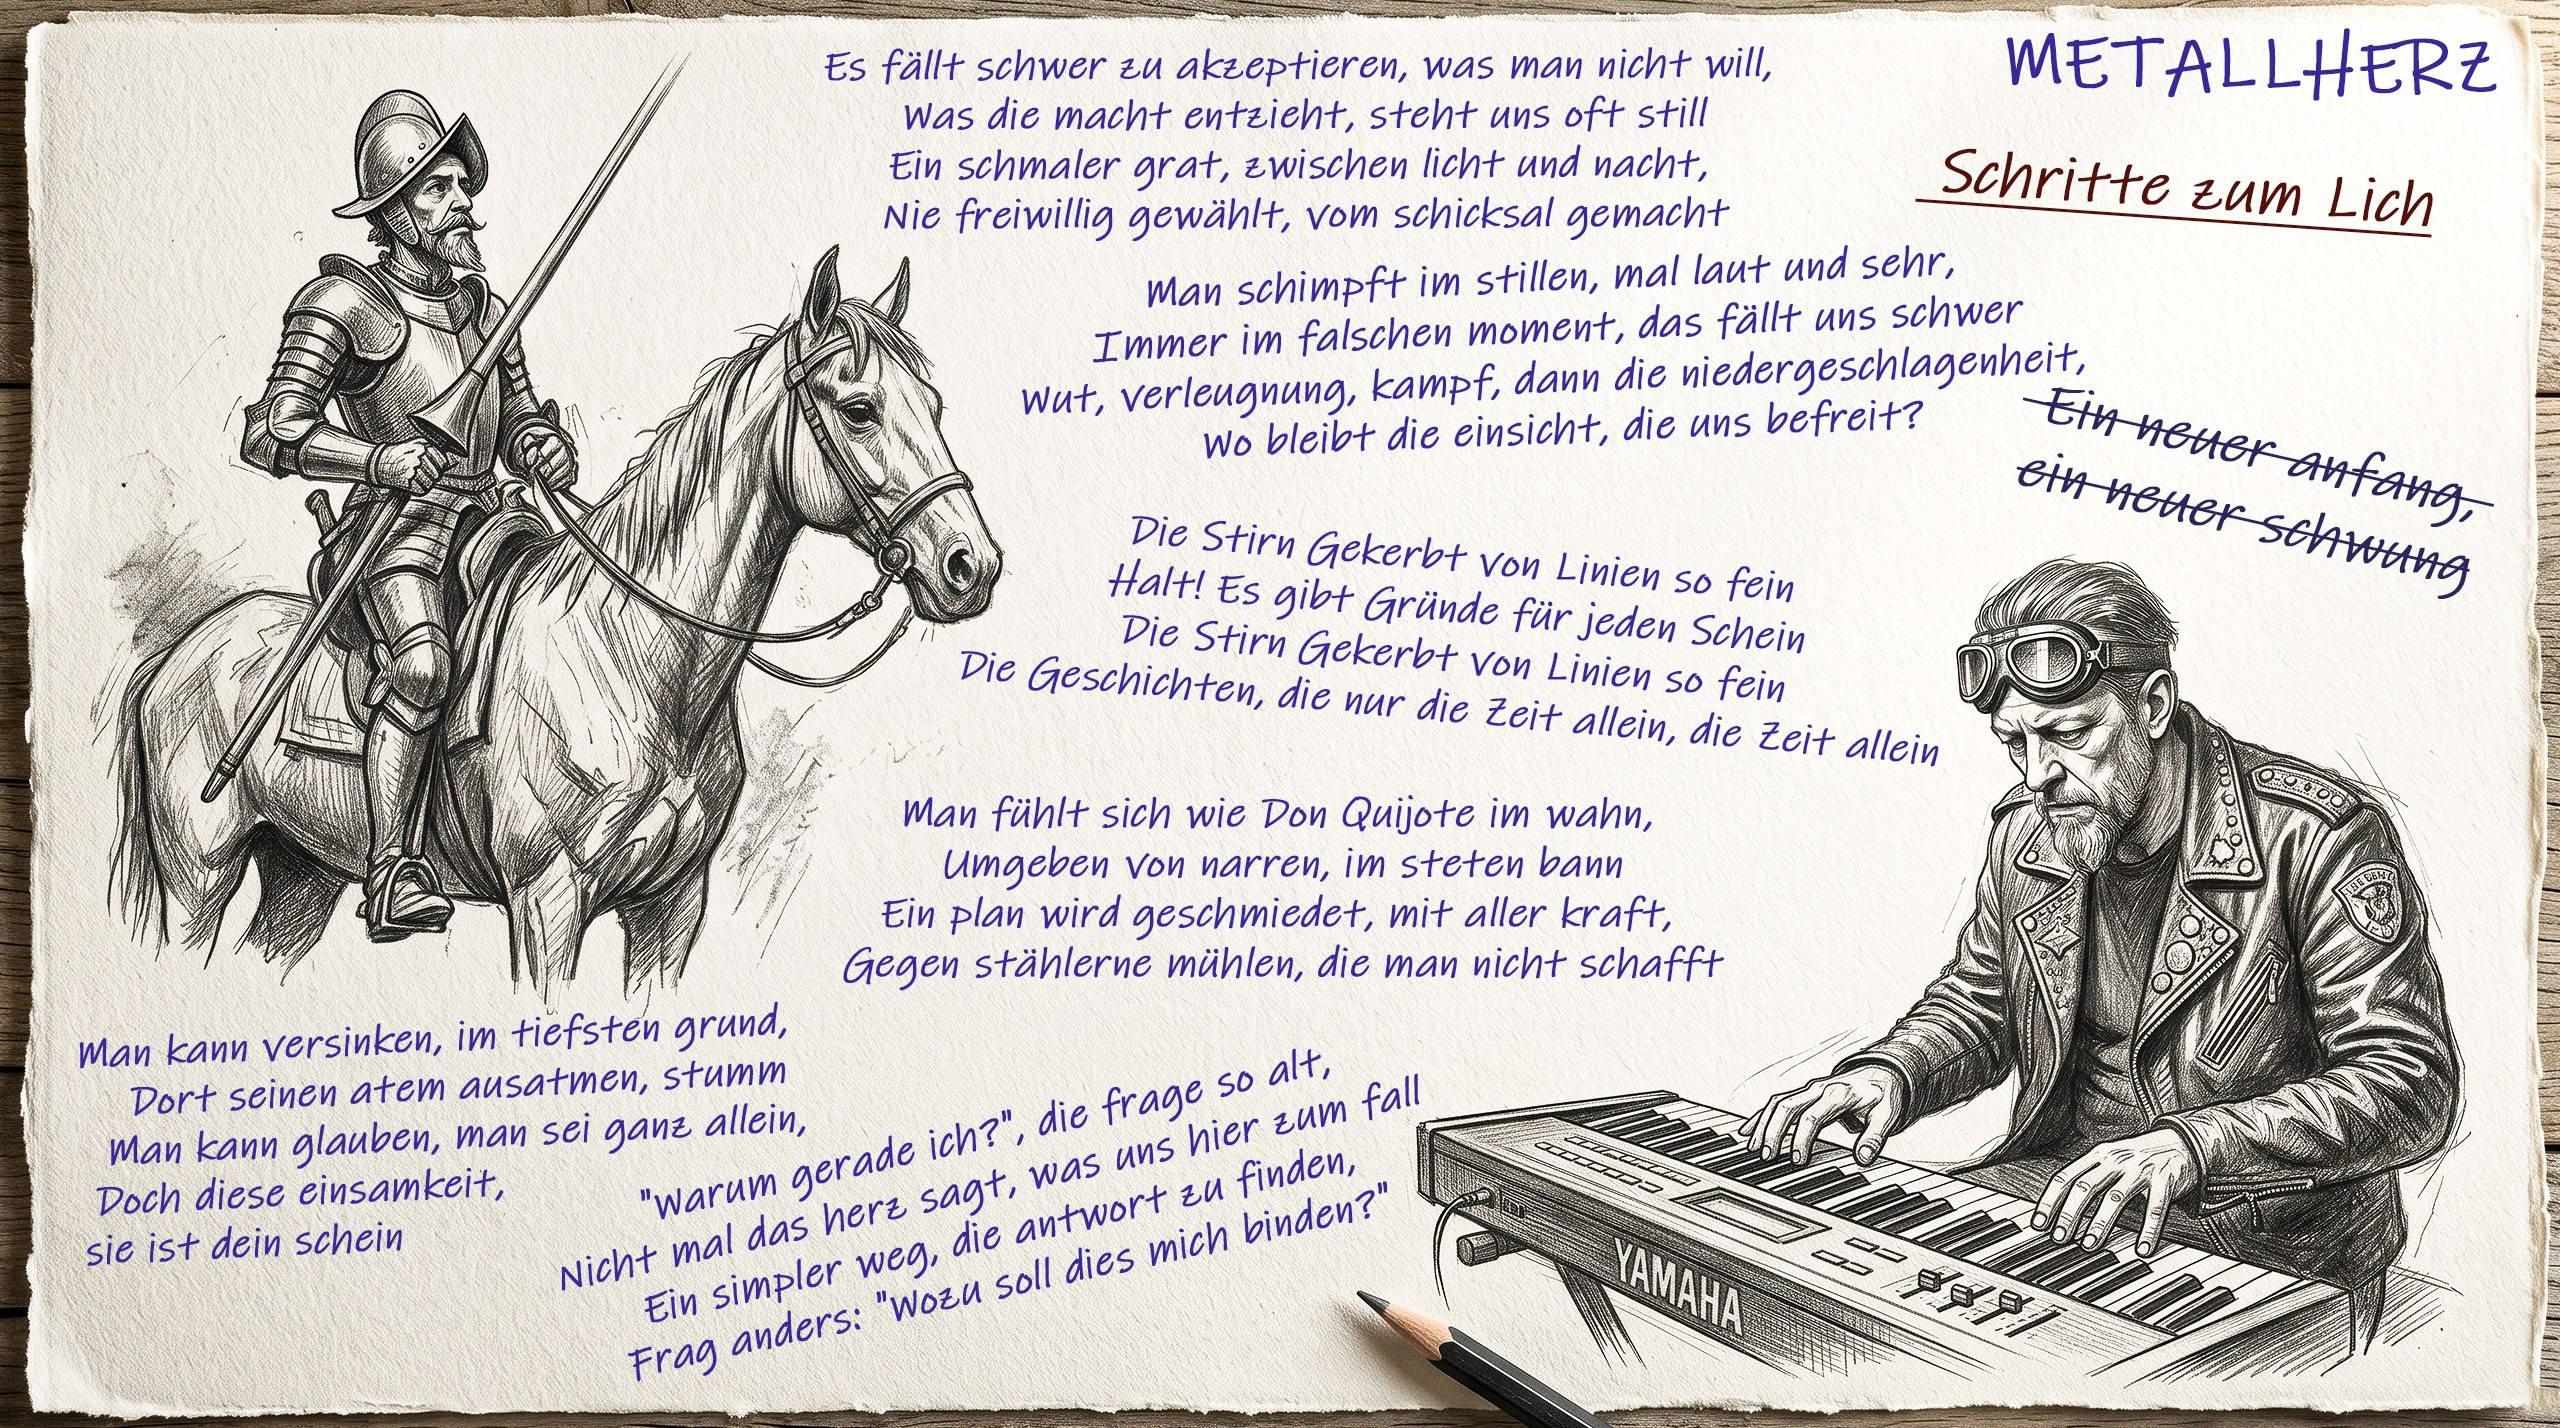 METALLHERZ
Schritte zum Lich
Es fällt schwer zu akzeptieren, was man nicht will,
Was die macht entzieht, steht uns oft still
Ein schmaler grat, zwischen licht und nacht,
Nie freiwillig gewählt, vom schicksal gemacht
Man schimpft im stillen, mal laut und sehr,
Immer im falschen moment, das fällt uns schwer
Wut, verleugnung, kampf, dann die niedergeschlagenheit,
Wo bleibt die einsicht, die uns befreit?
Ein neuer anfang,
ein neuer schwung
Die Stirn Gekerbt von Linien so fein
Halt! Es gibt Gründe für jeden Schein
Die Stirn Gekerbt von Linien so fein
Die Geschichten, die nur die Zeit allein, die Zeit allein
Man fühlt sich wie Don Quijote im wahn,
Umgeben von narren, im steten bann
Ein plan wird geschmiedet, mit aller kraft,
Gegen stählerne mühlen, die man nicht schafft
Man kann versinken, im tiefsten grund,
Dort seinen atem ausatmen, stumm
Man kann glauben, man sei ganz allein,
Doch diese einsamkeit,
sie ist dein schein
"Warum gerade ich?", die frage so alt,
Nicht mal das herz sagt, was uns hier zum fall
Ein simpler weg, die antwort zu finden,
Frag anders: "Wozu soll dies mich binden?"
YAMAHA